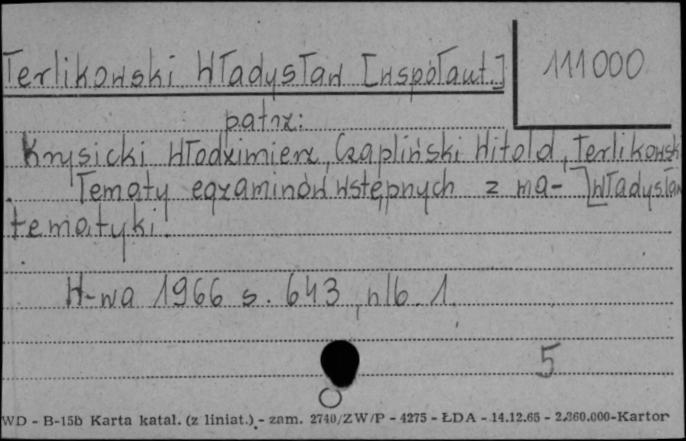 Terlikowski Władysław [współaut.]
111000
patrz:
Krysicki Włodzimierz, Czapliński Witold, Terlikowski
Tematy egzaminów wstępnych z ma- [Władysław
tematyki.
W-wa 1966 s. 643, nlb. 1.
5
WD - B-15b Karta katal. (z liniat.) - zam. 2740/ZW/P - 4275 - ŁDA - 14.12.65 - 2.360.000-Kartor